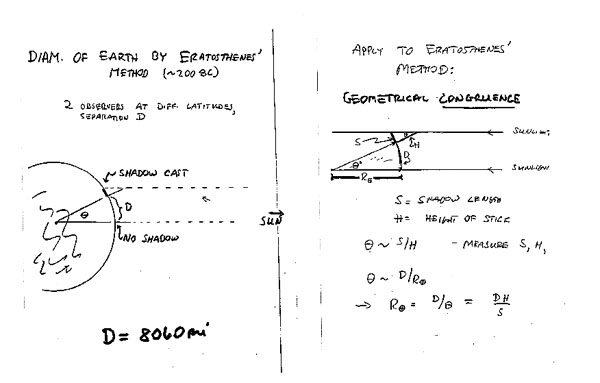 DIAM. OF EARTH BY ERATOSTHENES'
METHOD (~200 BC)
2 OBSERVERS AT DIFF. LATITUDES,
SEPARATION D
SHADOW CAST
D
θ
NO SHADOW
SUN
D = 8060 mi
APPLY TO ERATOSTHENES'
METHOD:
GEOMETRICAL CONGRUENCE
S
H
SUNLIGHT
θ
D
SUNLIGHT
R⊕
S = SHADOW LENGTH
H = HEIGHT OF STICK
θ ~ S/H - MEASURE S, H,
θ ~ D/R⊕
→ R⊕ = D/θ = DH/S